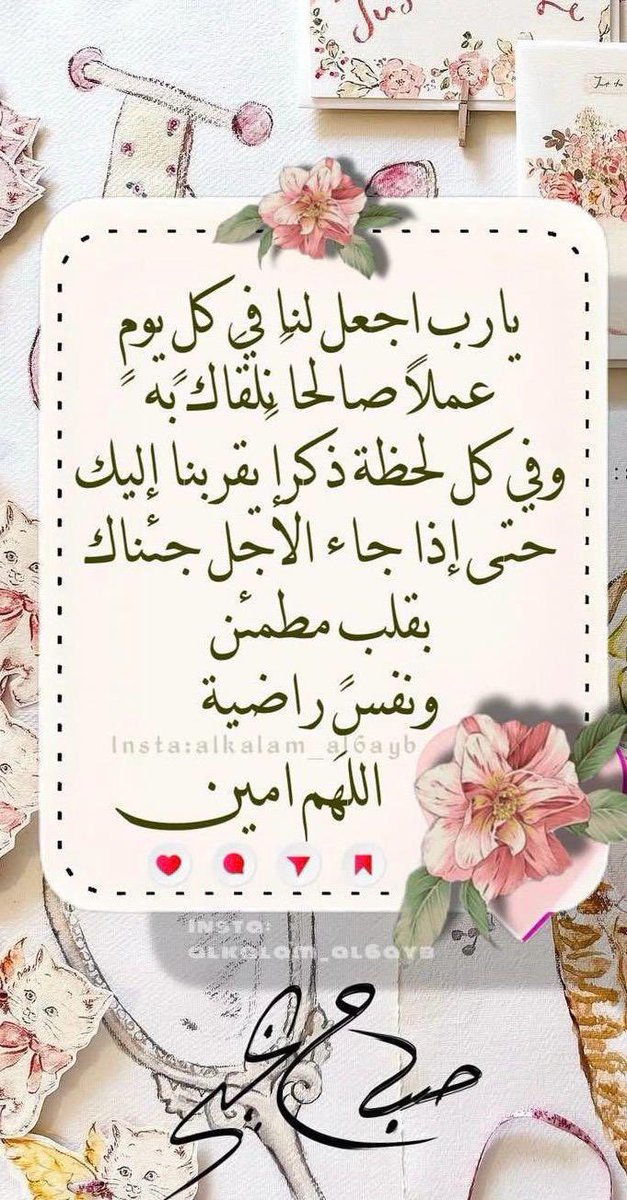 يا رب اجعل لنا في كل يوم
عملاً صالحا نلقاك به
وفي كل لحظة ذكرا يقربنا إليك
حتى إذا جاء الأجل جئناك
بقلب مطمئن
ونفسً راضية
Insta:alkalam_al6ayb
اللهم امين
INSTA:
ALKALAM_AL6AYB
صباح